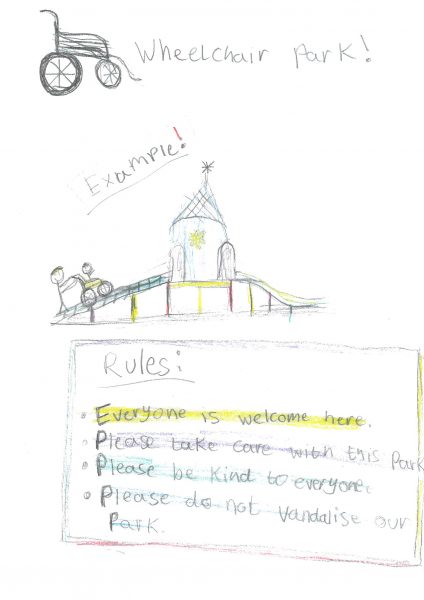 Wheelchair Park!
Example!
Rules:
• Everyone is welcome here.
• Please take care with this Park
• Please be kind to everyone.
• Please do not vandalise our
Park.